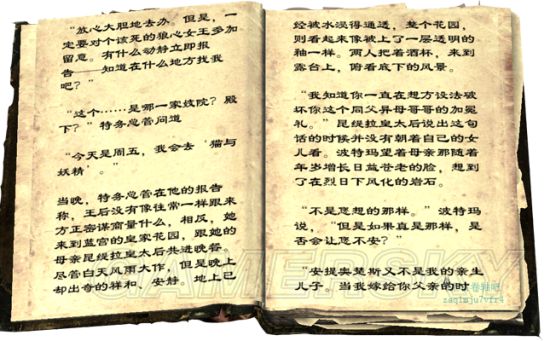 “放心大胆地去办。但是，一
定要对个该死的狼心女王多加
留意。有什么动静立即报
告——知道在什么地方找我
吧？”
“这个……是哪一家妓院？殿
下？”特务总管问道
“今天是周五，我会去‘猫与
妖精’。”
当晚，特务总管在他的报告
称，王后没有像往常一样跟来
方正密谋商量什么，相反，她
来到蓝宫的皇家花园，跟她的
母亲昆缇拉皇太后共进晚餐。
尽管白天风雨大作，但是晚上
却出奇的祥和、安静。地上已
经被水浸得通透，整个花园，
则看起来像被上了一层透明的
釉一样。两人把着酒杯，来到
露台上，俯看底下的风景。
“我知道你一直在想方设法破
坏你这个同父异母哥哥的加冕
礼。”昆缇拉皇太后说出这句
话的时候并没有朝着自己的女
儿看。波特玛望着母亲那随着
年岁增长日益苍老的脸，想到
了在烈日下风化的岩石。
“不是您想的那样。”波特玛
说，“但是如果真是那样，是
否会让您不安？”
“安提奥楚斯又不是我的亲生
儿子。当我嫁给你父亲的时
GAMERSKY
卷轴吧
zaq1mju7vfr4